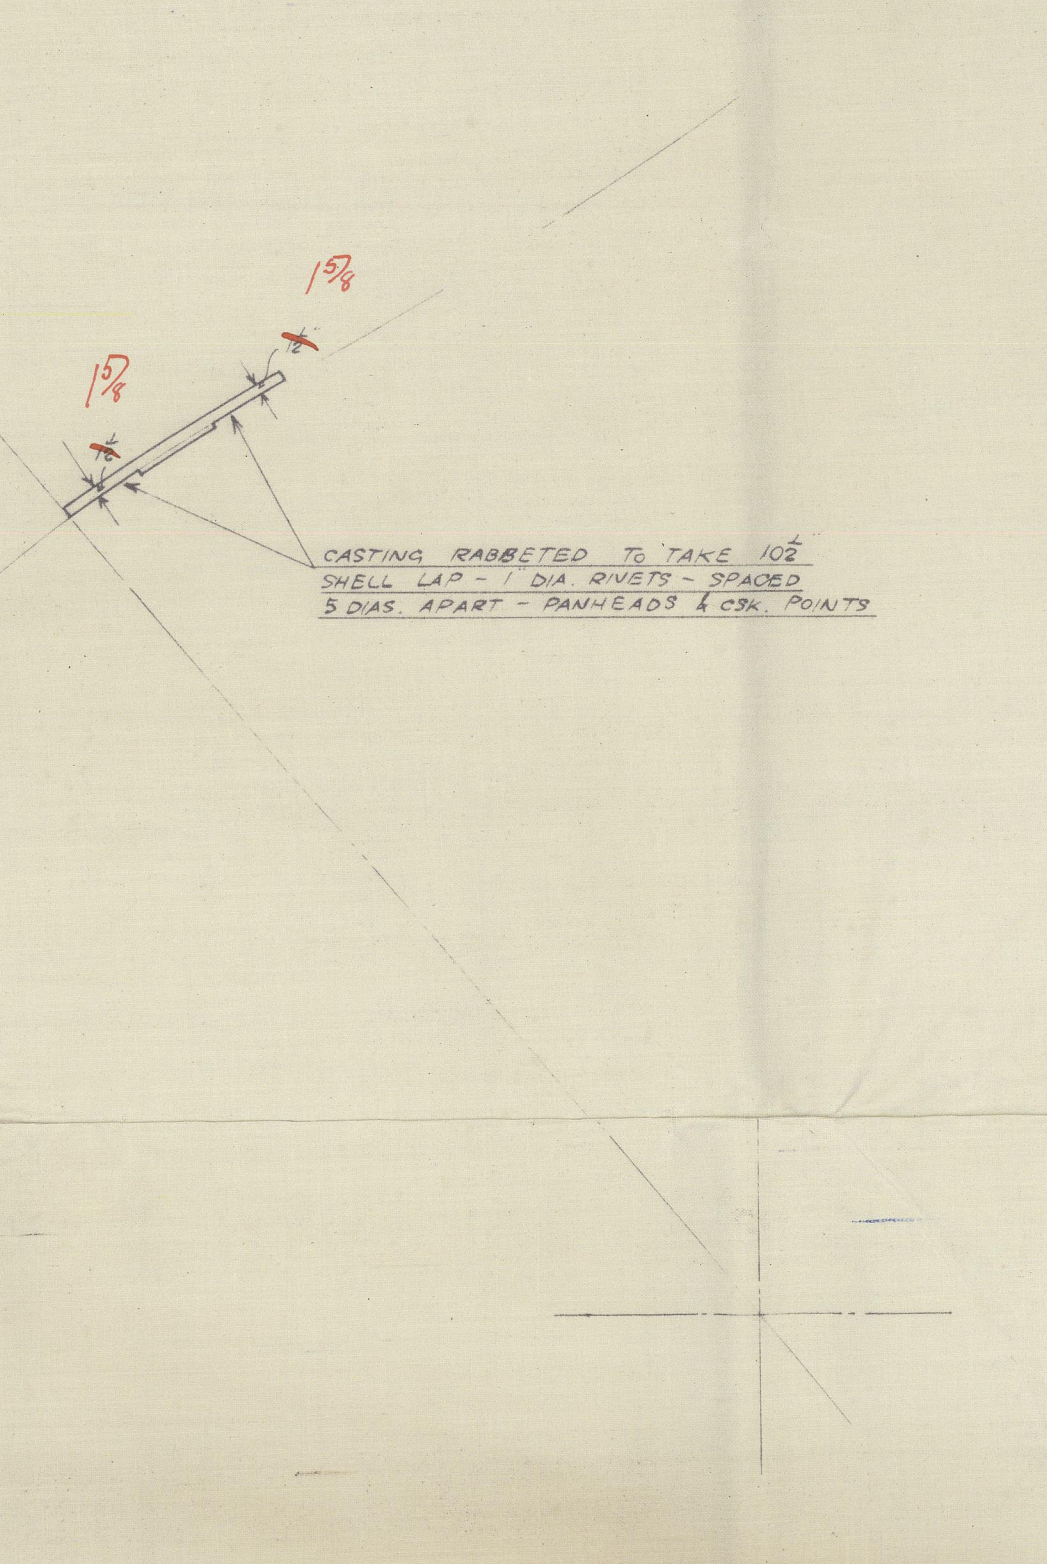 1 5/8
1 1/2"
1 5/8
1 1/2
CASTING RABBETED TO TAKE 10 1/2"
SHELL LAP - 1" DIA. RIVETS - SPACED
5 DIAS. APART - PANHEADS & CSK. POINTS